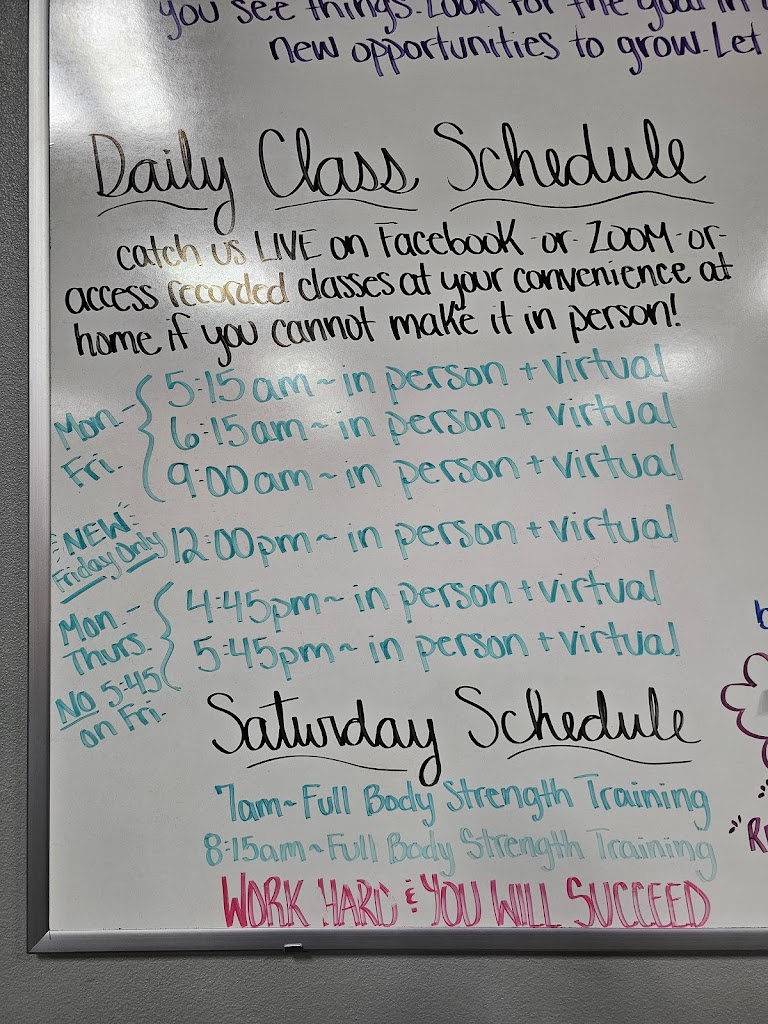 you see things. Look for the goal in
new opportunities to grow. Let
Daily Class Schedule
catch us LIVE on Facebook -or- ZOOM -or-
access recorded classes at your convenience at
home if you cannot make it in person!
Mon.-
Fri.
5:15am~in person + virtual
6:15am~in person + virtual
9:00am~in person + virtual
NEW
Friday Only
12:00pm~in person + virtual
Mon.-
Thurs.
4:45pm~in person + virtual
5:45pm~in person + virtual
No 5:45
on Fri.
Saturday Schedule
7am~Full Body Strength Training
8:15am~Full Body Strength Training
WORK HARD & YOU WILL SUCCEED